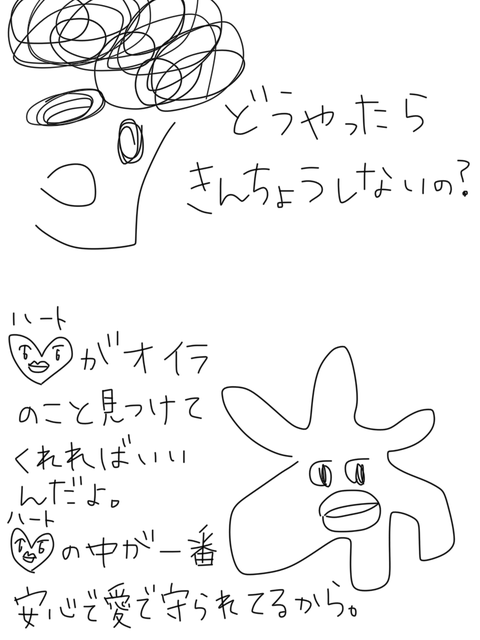 どうやったら
きんちょうしないの?
ハート
がオイラ
のこと見つけて
くれればいい
んだよ。
ハート
の中が一番
安心で愛で守られてるから。